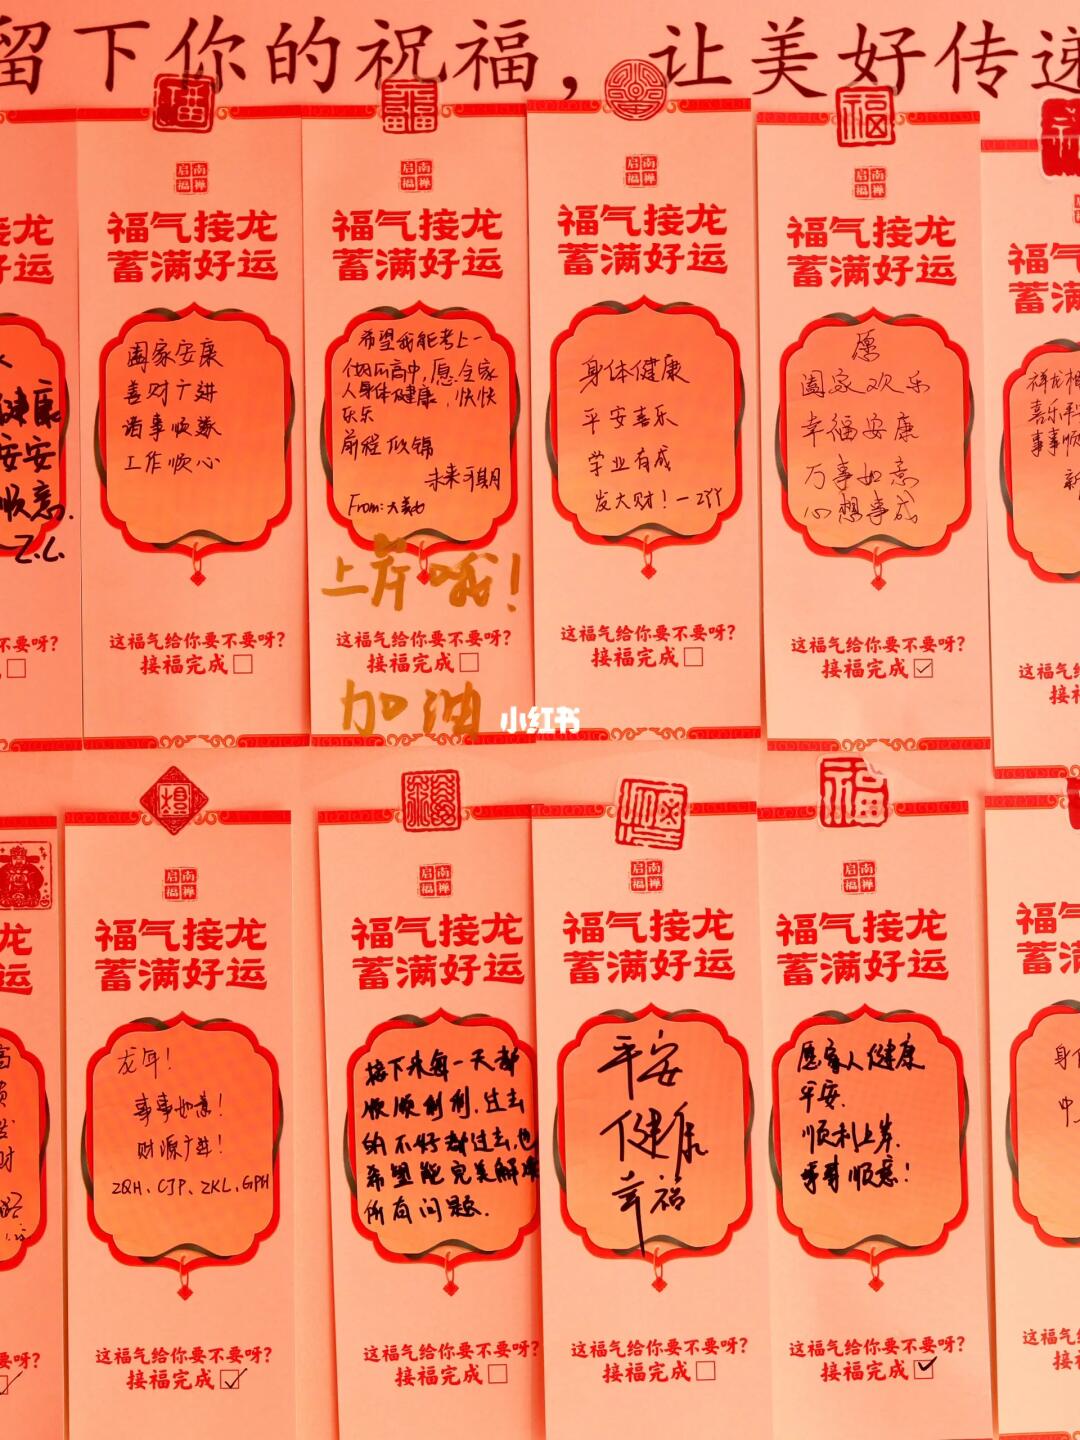 留下你的祝福，让美好传递
启南
福禅
福气接龙
蓄满好运
阖家安康
善财广进
诸事顺遂
工作顺心
这福气给你要不要呀？
接福完成
启南
福禅
福气接龙
蓄满好运
希望我能考上一
个好高中，愿全家
人身体健康，快快
乐乐
前程似锦
未来可期
上岸哦！
这福气给你要不要呀？
接福完成
加油
小红书
启南
福禅
福气接龙
蓄满好运
身体健康
平安喜乐
学业有成
发大财！
这福气给你要不要呀？
接福完成
福
启南
福禅
福气接龙
蓄满好运
愿
阖家欢乐
幸福安康
万事如意
心想事成
这福气给你要不要呀？
接福完成
启南
福禅
福气接龙
蓄满好运
龙年！
事事如意！
财源广进！
ZQH、CJP、ZKL、GPH
这福气给你要不要呀？
接福完成
启南
福禅
福气接龙
蓄满好运
接下来每一天都
顺顺利利，过去
的不好都过去，也
希望能完美解决
所有问题.
这福气给你要不要呀？
接福完成
启南
福禅
福气接龙
蓄满好运
平安
健康
幸福
这福气给你要不要呀？
接福完成
福
启南
福禅
福气接龙
蓄满好运
愿家人健康
平安.
顺利上岸.
事事顺意！
这福气给你要不要呀？
接福完成